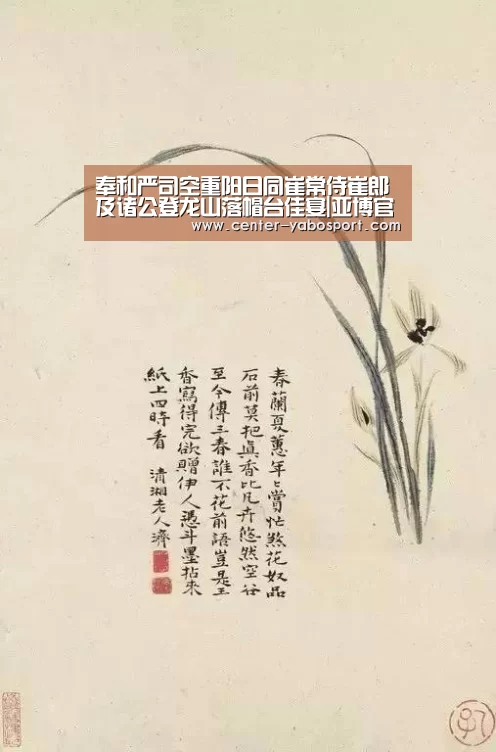 奉和严司空重阳日同崔常侍崔郎
及诸公登龙山落帽台佳宴|亚博官
www.center-yabosport.com
春蘭夏蕙年〻賞忙煞花奴品
石前莫把真香比凡卉悠然空谷
至今傳三春誰不花前語豈是王
香寫得完欲贈伊人憑斗墨拈來
紙上四時看 清湘老人濟